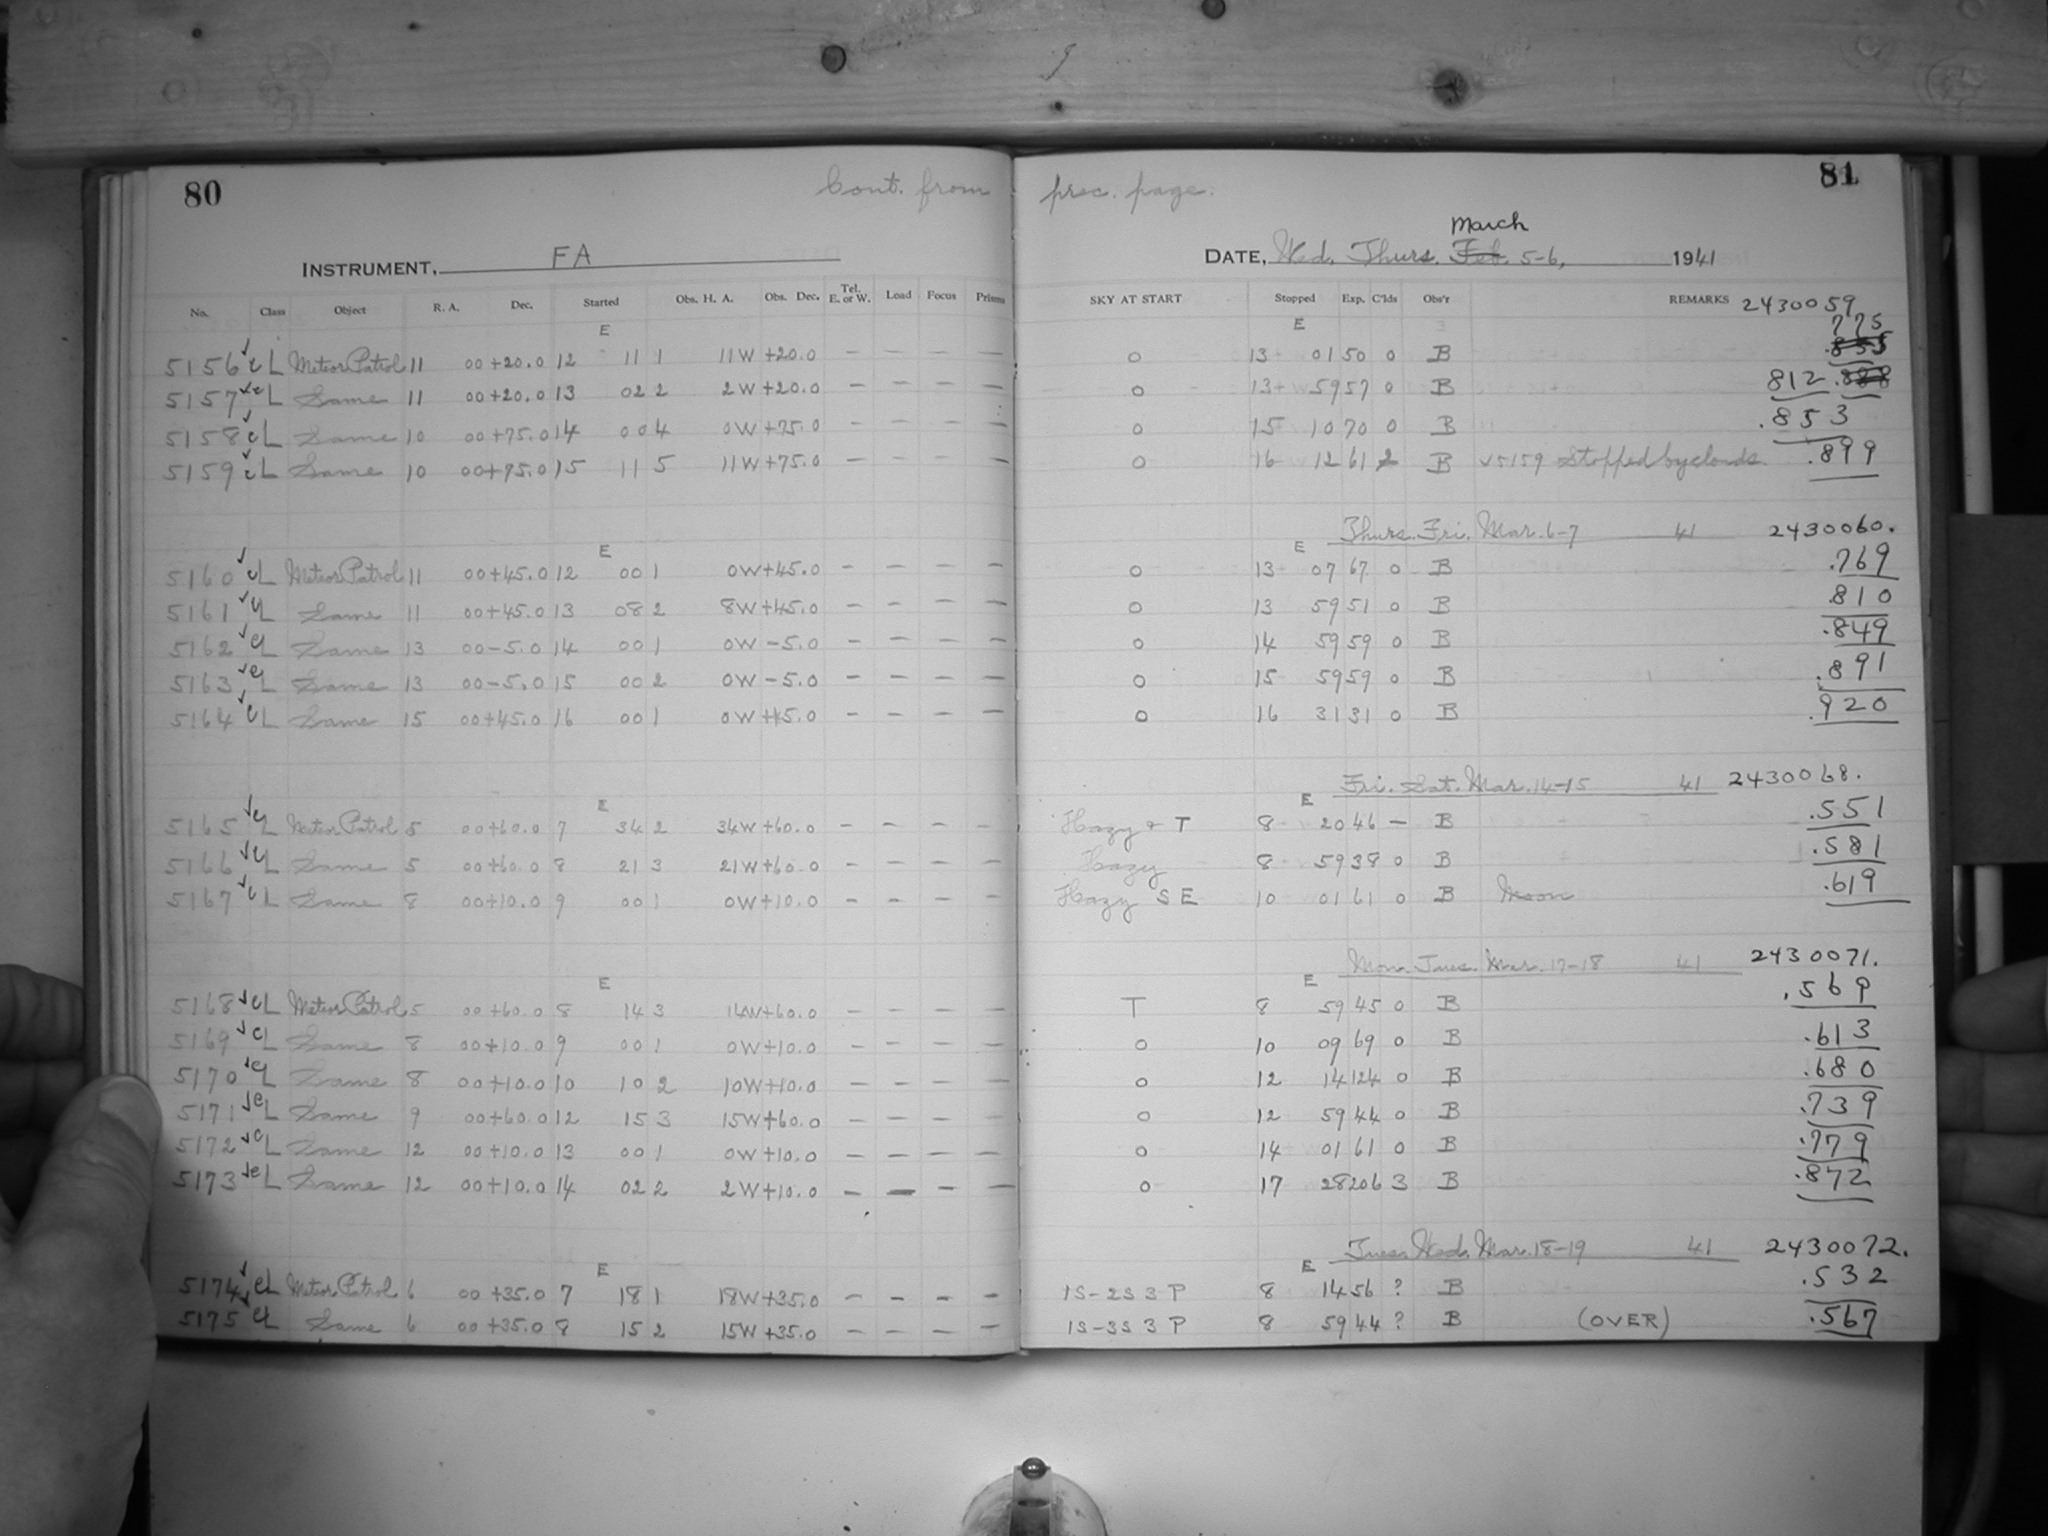 80
Cont. from prec. page.
81
INSTRUMENT, FA
DATE, Wed. Thurs. Feb. March 5-6, 1941
No. Class Object R. A. Dec. Started Obs. H. A. Obs. Dec. Tel. E. or W. Load Focus Prisms SKY AT START Stopped Exp. C'lds Obs'r REMARKS 2430059
E E .775
5156 ✓ cL Meteor Patrol 11 00 +20.0 12 11 1 11W +20.0 — — — — 0 13 01 50 0 B
5157 ✓ cL Same 11 00 +20.0 13 02 2 2W +20.0 — — — — 0 13 59 57 0 B 812
5158 ✓ cL Same 10 00 +75.0 14 00 4 0W +75.0 — — — — 0 15 10 70 0 B .853
5159 ✓ cL Same 10 00 +75.0 15 11 5 11W +75.0 — — — — 0 16 12 61 2 B ✓5159 Stopped by clouds. .899
Thurs. Fri. Mar. 6-7 41 2430060.
E E
5160 ✓ cL Meteor Patrol 11 00 +45.0 12 00 1 0W +45.0 — — — — 0 13 07 67 0 B .769
5161 ✓ cL Same 11 00 +45.0 13 08 2 8W +45.0 — — — — 0 13 59 51 0 B .810
5162 ✓ cL Same 13 00 -5.0 14 00 1 0W -5.0 — — — — 0 14 59 59 0 B .849
5163 ✓ cL Same 13 00 -5.0 15 00 2 0W -5.0 — — — — 0 15 59 59 0 B .891
5164 ✓ cL Same 15 00 +45.0 16 00 1 0W +45.0 — — — — 0 16 31 31 0 B .920
Fri. Sat. Mar. 14-15 41 2430068.
E E
5165 ✓ cL Meteor Patrol 5 00 +60.0 7 34 2 34W +60.0 — — — — Hazy + T 8 20 46 — B .551
5166 ✓ cL Same 5 00 +60.0 8 21 3 21W +60.0 — — — — Hazy 8 59 38 0 B .581
5167 ✓ cL Same 8 00 +10.0 9 00 1 0W +10.0 — — — — Hazy S E 10 01 61 0 B Moon .619
Mon. Tues. Mar. 17-18 41 2430071.
E E
5168 ✓ cL Meteor Patrol 5 00 +60.0 8 14 3 14W +60.0 — — — — T 8 59 45 0 B .569
5169 ✓ cL Same 8 00 +10.0 9 00 1 0W +10.0 — — — — 0 10 09 69 0 B .613
5170 ✓ cL Same 8 00 +10.0 10 10 2 10W +10.0 — — — — 0 12 14 124 0 B .680
5171 ✓ cL Same 9 00 +60.0 12 15 3 15W +60.0 — — — — 0 12 59 44 0 B .739
5172 ✓ cL Same 12 00 +10.0 13 00 1 0W +10.0 — — — — 0 14 01 61 0 B .779
5173 ✓ cL Same 12 00 +10.0 14 02 2 2W +10.0 — — — — 0 17 28 206 3 B .872
Tues. Wed. Mar. 18-19 41 2430072.
E E
5174 ✓ cL Meteor Patrol 6 00 +35.0 7 18 1 18W +35.0 — — — — 1S-2S 3 P 8 14 56 ? B .532
5175 ✓ cL Same 6 00 +35.0 8 15 2 15W +35.0 — — — — 1S-3S 3 P 8 59 44 ? B (OVER) .567